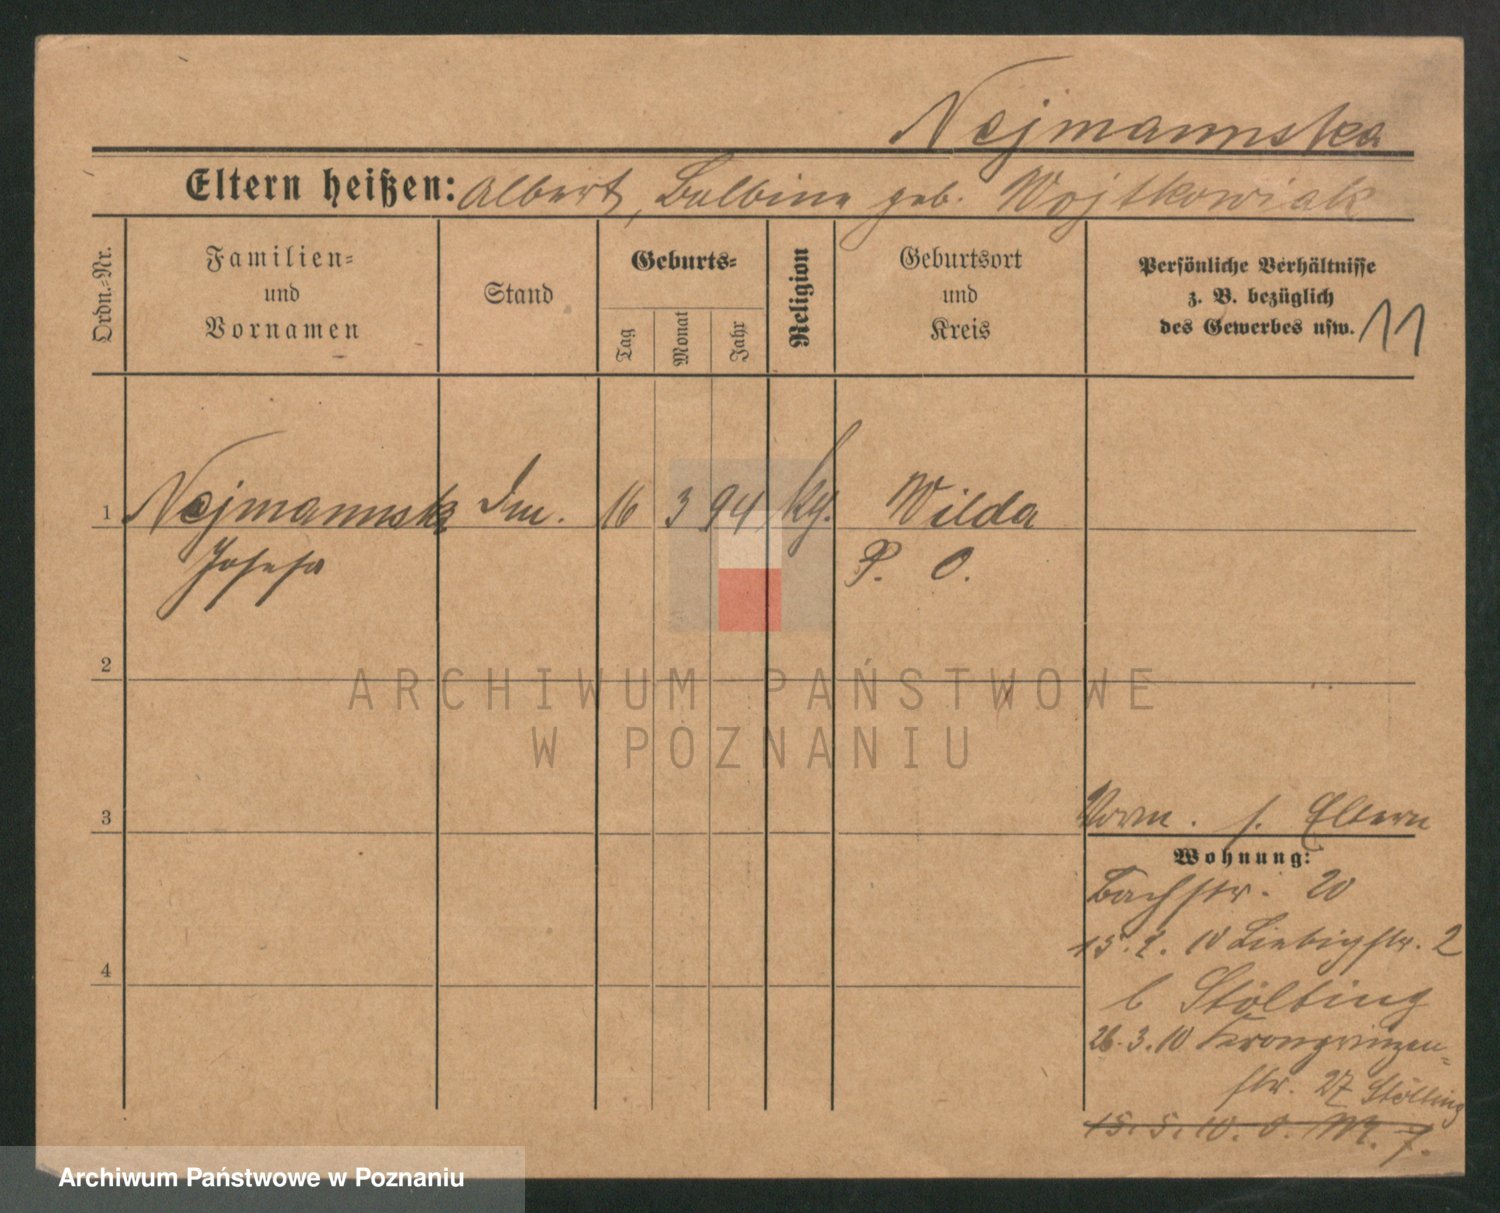 Nejmannska
Eltern heißen: Albert, Balbina geb. Wojtkowiak
Ordn.-Nr.
Familien-
und
Vornamen
Stand
Geburts-
Tag
Monat
Jahr
Religion
Geburtsort
und
Kreis
Persönliche Verhältnisse
z. B. bezüglich
des Gewerbes usw.
11
1 Nejmannsk 16 3 94 Wilda
Josefa P. O.
2
ARCHIWUM PAŃSTWOWE
W POZNANIU
3
s. Eltern
Wohnung:
Bachstr. 20
15. 2. 10 Liebigstr. 2
b Stölting
26. 3. 10 Kronprinzen-
str. 27 Stölting
4
15. 5. 10. O. M. 7.
Archiwum Państwowe w Poznaniu